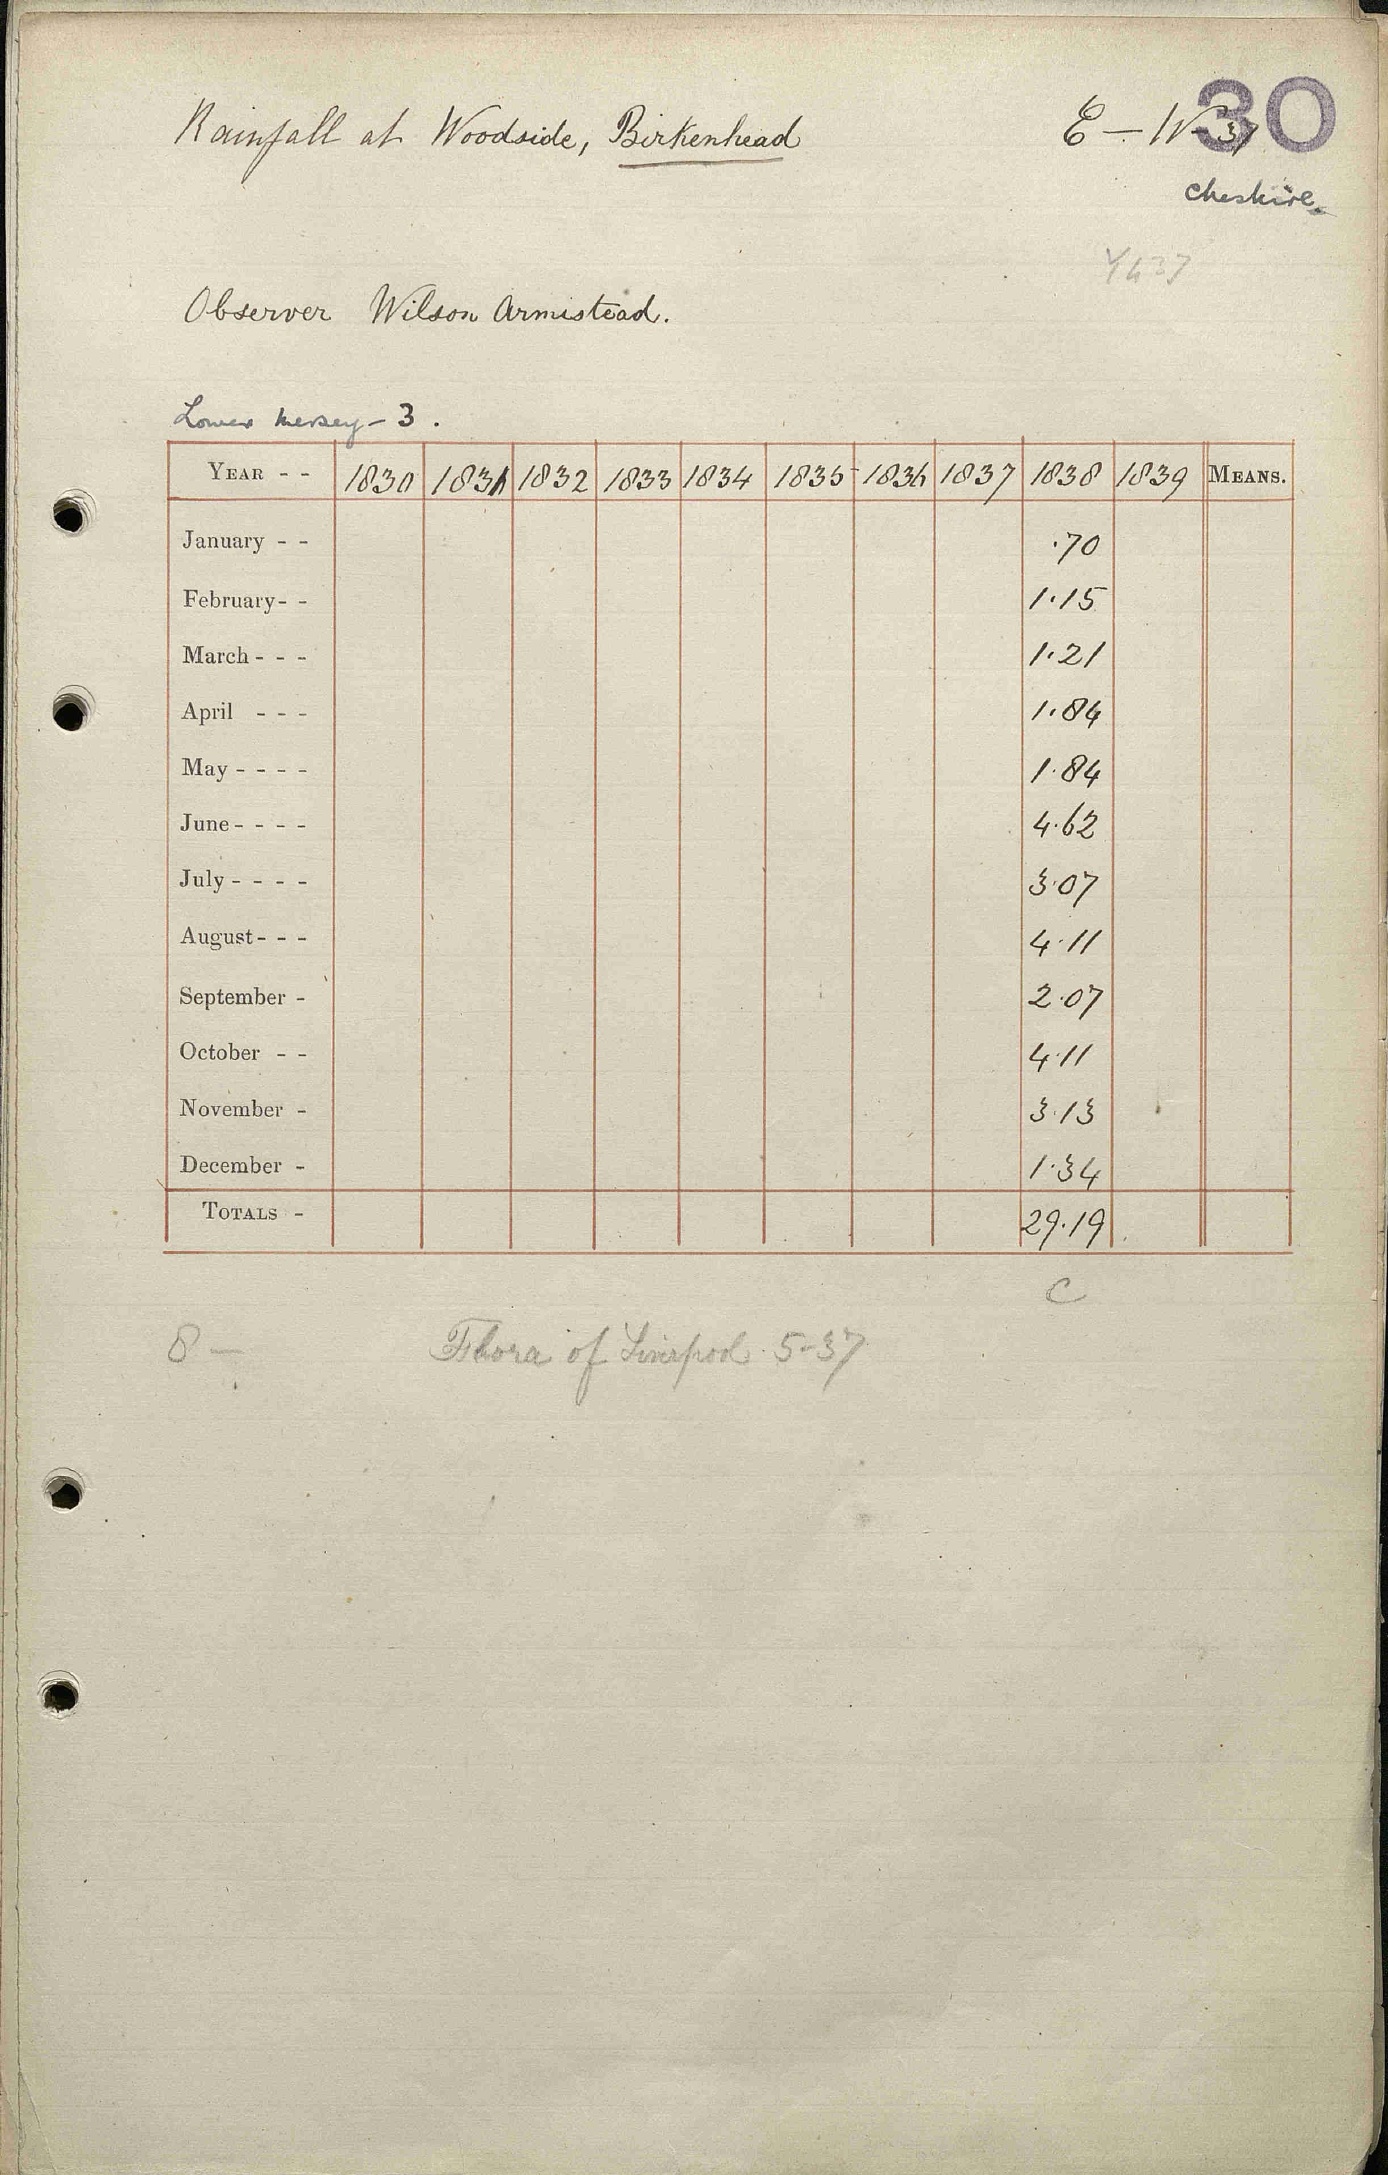 Rainfall at Woodside, Birkenhead
30
Cheshire.
Observer Wilson Armistead.
Lower Mersey - 3.
YEAR - - 1830 1831 1832 1833 1834 1835 1836 1837 1838 1839 MEANS.
January - - .70
February - - 1.15
March - - - 1.21
April - - - 1.84
May - - - - 1.84
June - - - - 4.62
July - - - - 3.07
August - - - 4.11
September - 2.07
October - - 4.11
November - 3.13
December - 1.34
TOTALS - 29.19
C
8 — Flora of Liverpool 5-37